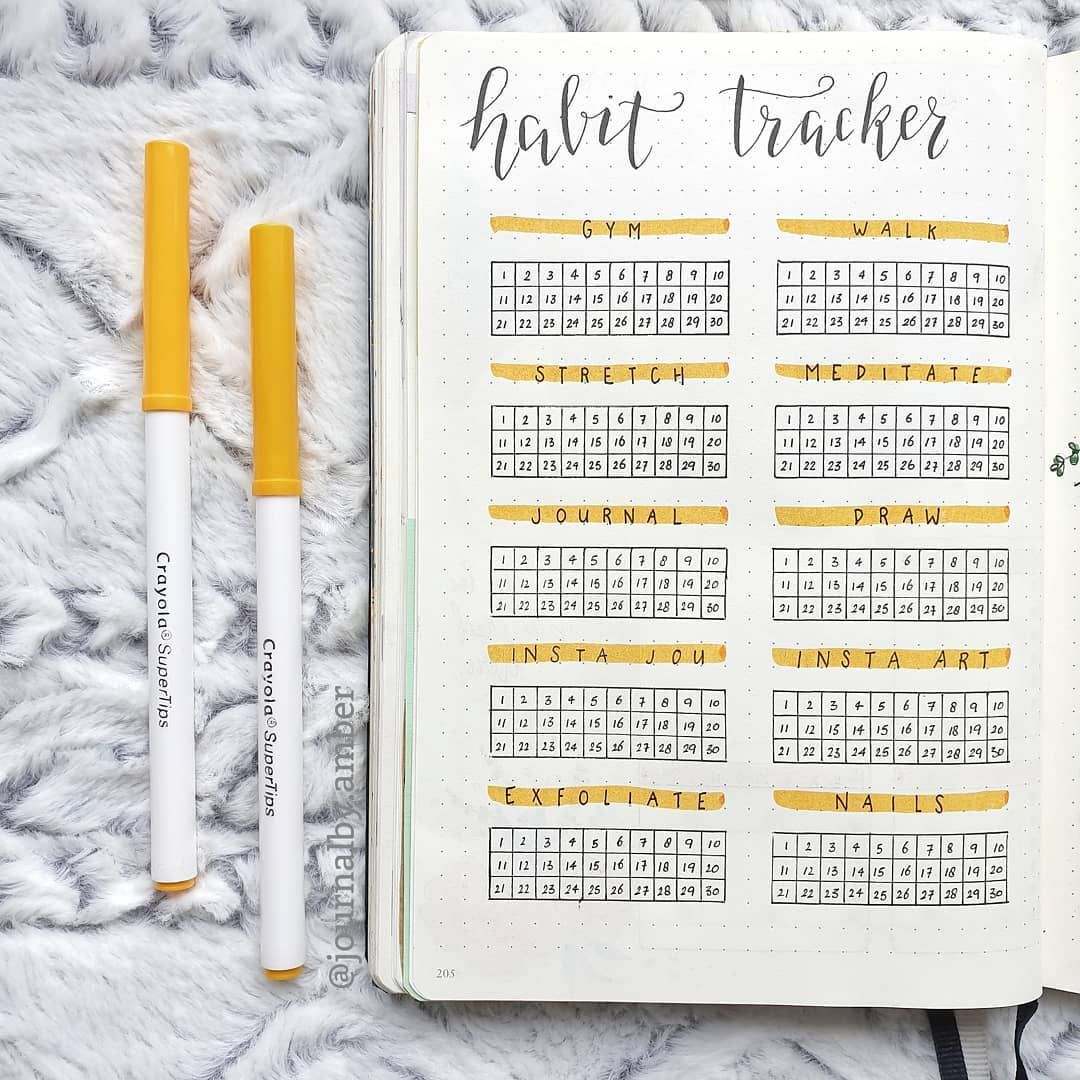 habit tracker
GYM WALK
1 2 3 4 5 6 7 8 9 10 1 2 3 4 5 6 7 8 9 10
11 12 13 14 15 16 17 18 19 20 11 12 13 14 15 16 17 18 19 20
21 22 23 24 25 26 27 28 29 30 21 22 23 24 25 26 27 28 29 30
STRETCH MEDITATE
1 2 3 4 5 6 7 8 9 10 1 2 3 4 5 6 7 8 9 10
11 12 13 14 15 16 17 18 19 20 11 12 13 14 15 16 17 18 19 20
21 22 23 24 25 26 27 28 29 30 21 22 23 24 25 26 27 28 29 30
JOURNAL DRAW
1 2 3 4 5 6 7 8 9 10 1 2 3 4 5 6 7 8 9 10
11 12 13 14 15 16 17 18 19 20 11 12 13 14 15 16 17 18 19 20
21 22 23 24 25 26 27 28 29 30 21 22 23 24 25 26 27 28 29 30
INSTA JOU INSTA ART
1 2 3 4 5 6 7 8 9 10 1 2 3 4 5 6 7 8 9 10
11 12 13 14 15 16 17 18 19 20 11 12 13 14 15 16 17 18 19 20
21 22 23 24 25 26 27 28 29 30 21 22 23 24 25 26 27 28 29 30
EXFOLIATE NAILS
1 2 3 4 5 6 7 8 9 10 1 2 3 4 5 6 7 8 9 10
11 12 13 14 15 16 17 18 19 20 11 12 13 14 15 16 17 18 19 20
21 22 23 24 25 26 27 28 29 30 21 22 23 24 25 26 27 28 29 30
205
Crayola® SuperTips
Crayola® SuperTips
@journalby.amber